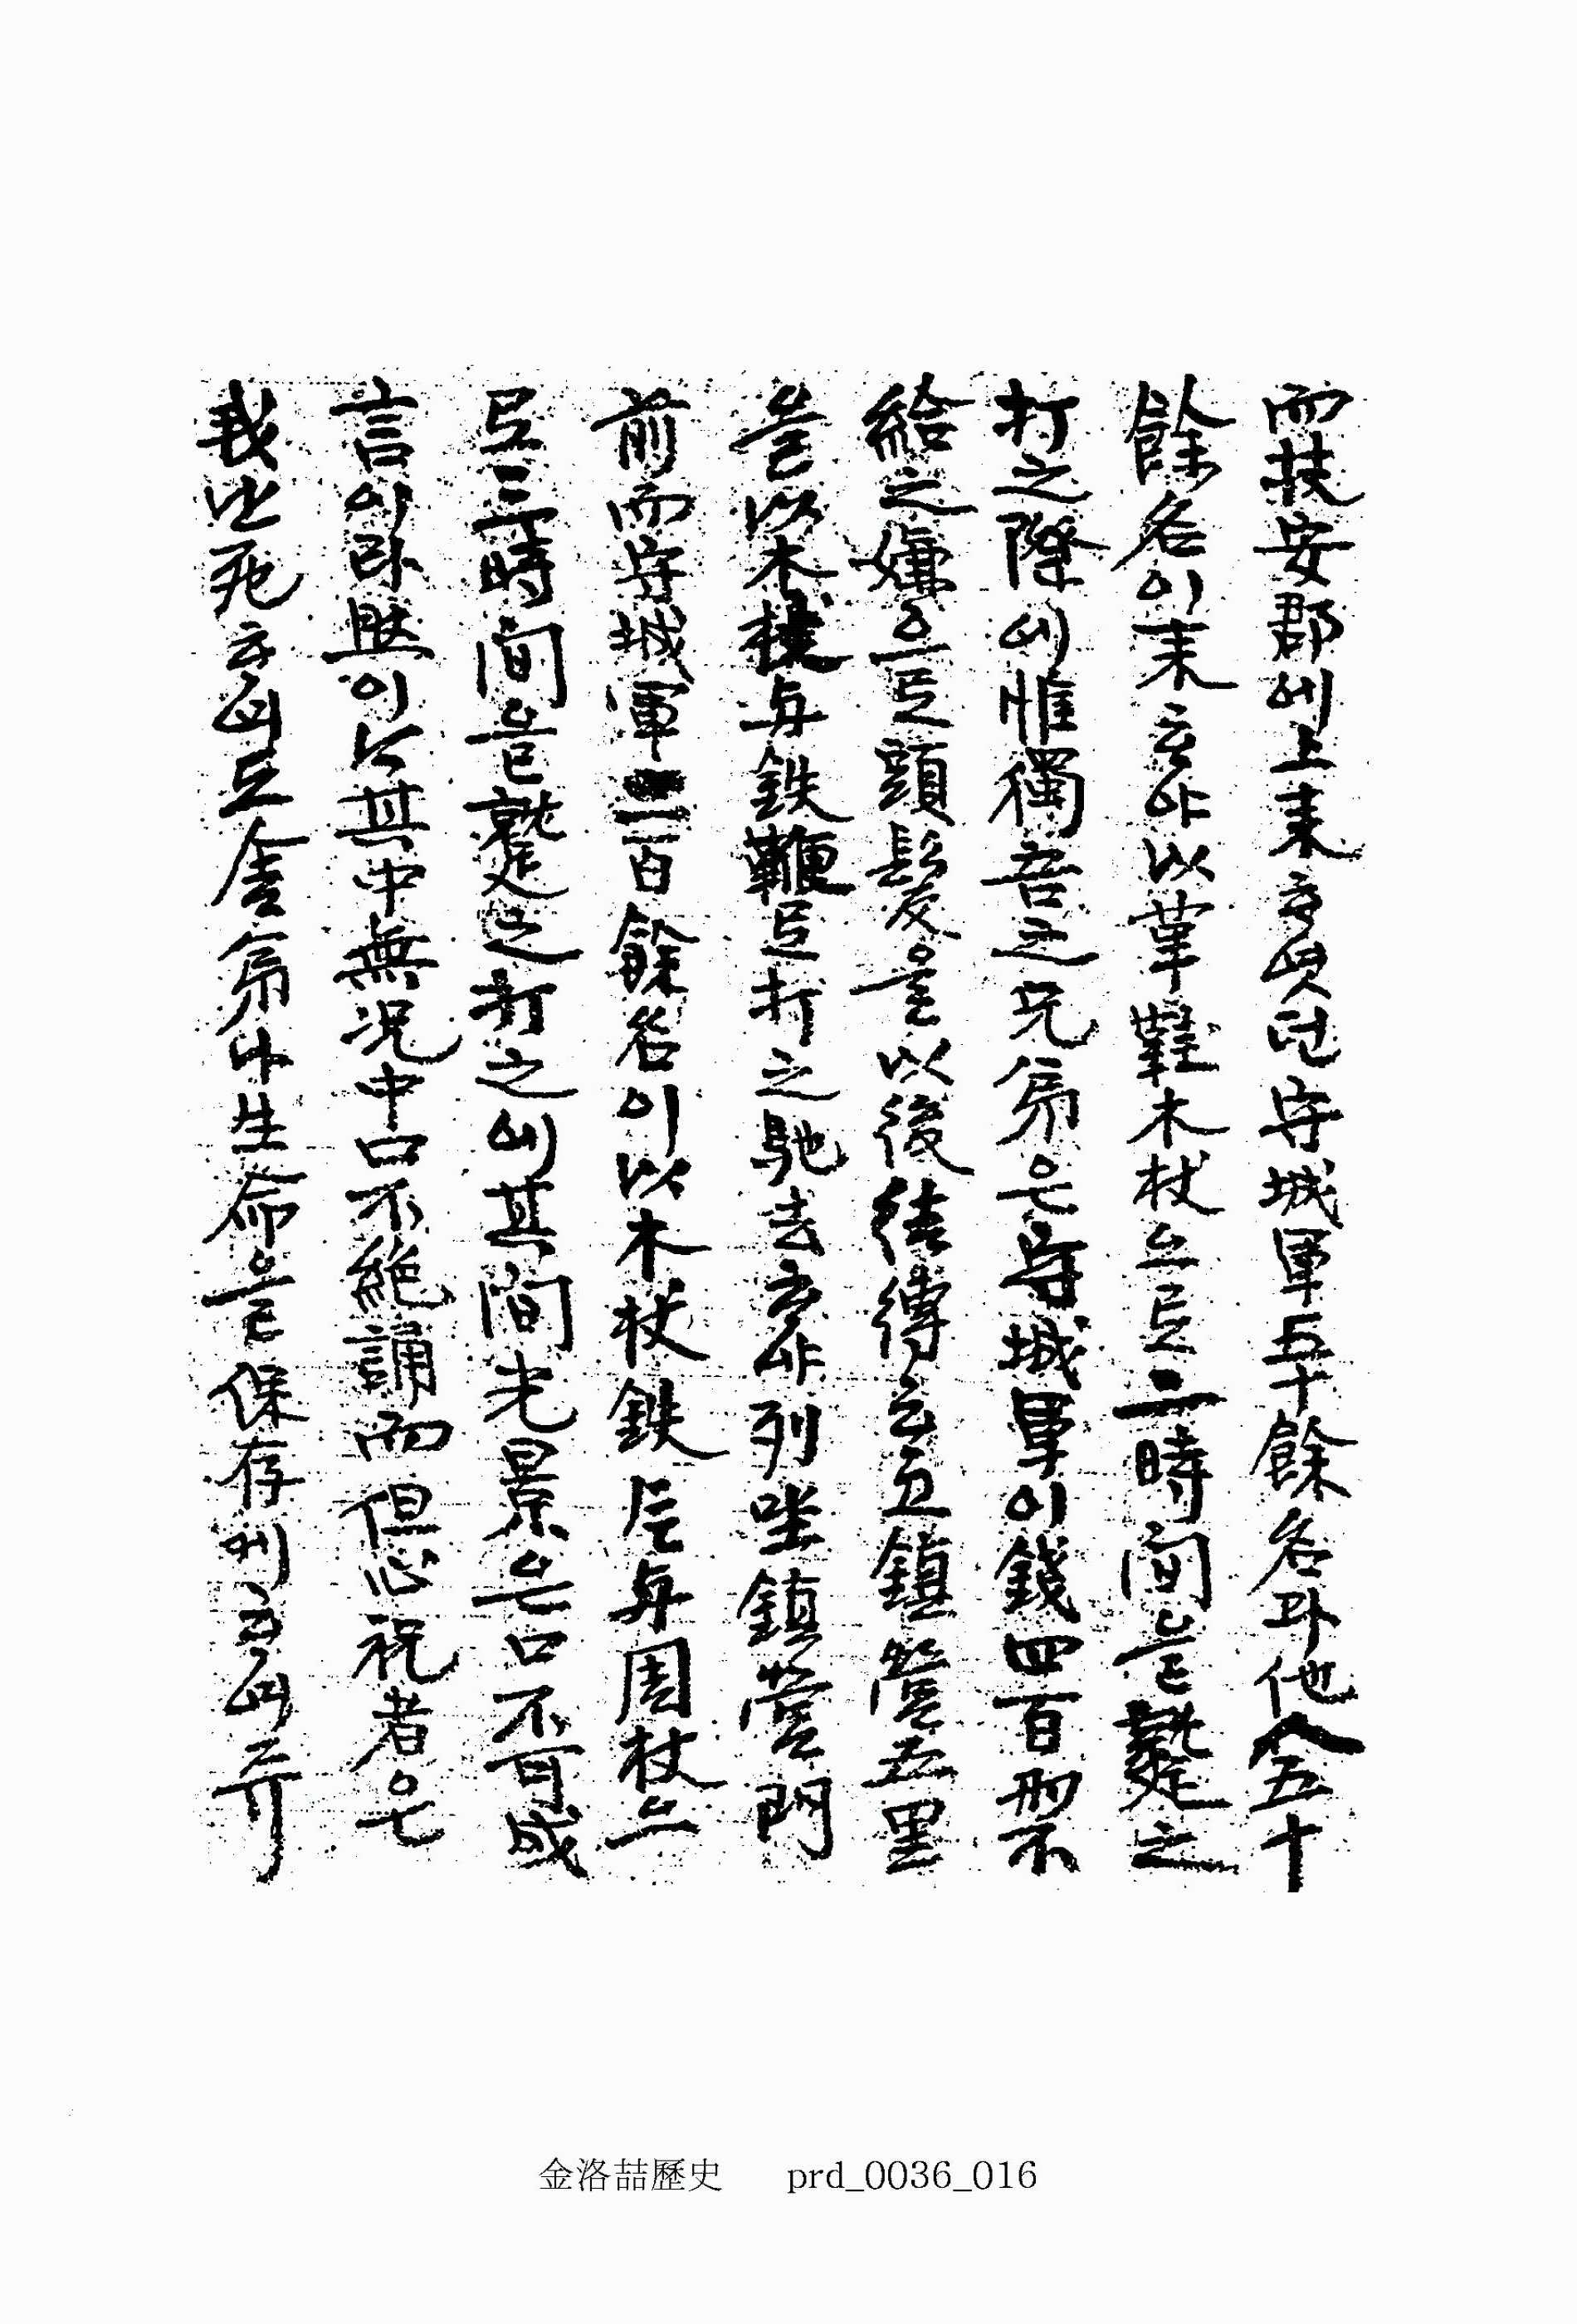 而扶安郡에上来하엿던守城軍五十餘名과他人五十
餘名이来하야以革鞋木杖으로二時間을蹴之
打之際에惟獨吾之兄弟은守城軍이錢四百兩不
給之嫌으로頭髮을以後結縛하고五鎮營五里
을以木杖与鉄鞭로打之馳去하야列坐鎮營門
前而守城軍二百餘名이以木杖鉄与周杖으
로三時間을蹴之打之에其間光景은口不可成
言이라然이나其中無况中口不絶誦而但心祝者은
我난死하여도舍弟生命을保存케하여